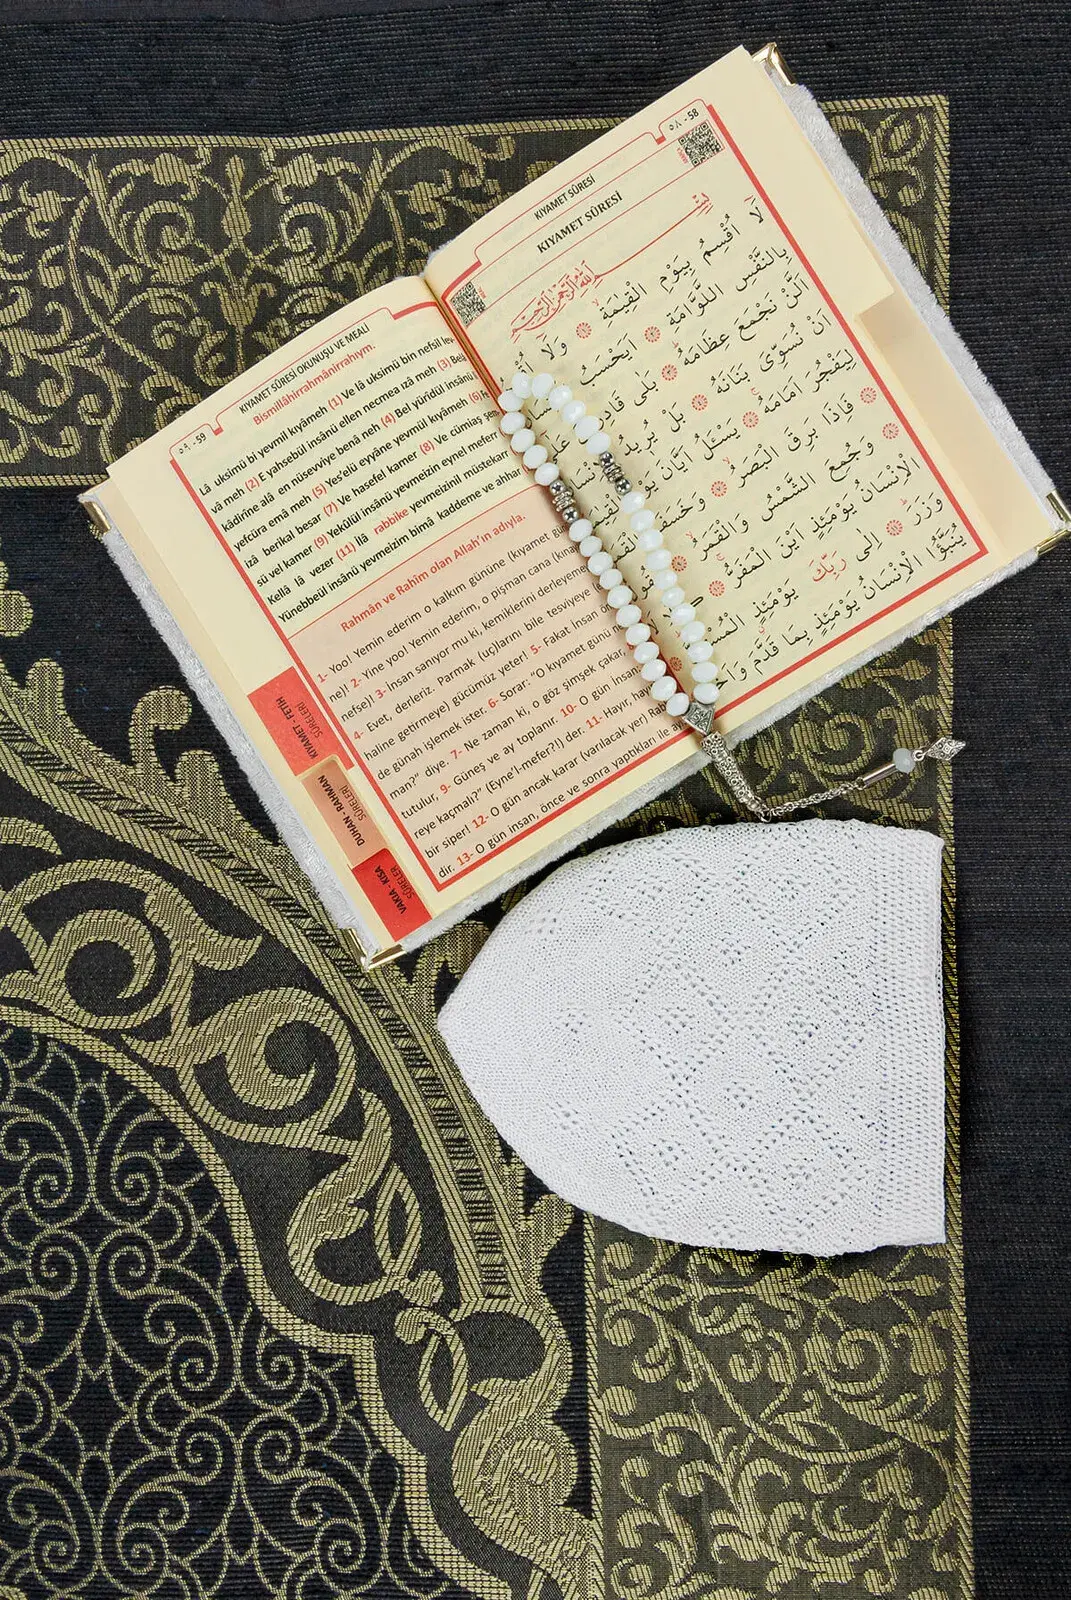 ٥٩ - 59
KIYAMET SÛRESİ OKUNUŞU VE MEALİ
Bismillâhirrahmânirrahıym.
Lâ uksimü bi yevmil kıyâmeh (1) Ve lâ uksimü bin nefsil
vâ meh (2) E yahsebül insânü ellen necmea ızâ meh (3)
kâdirîne alâ en nüsevviye benâ neh (4) Bel yürîdül insânü
yefcüra emâ meh (5) Yes'elü eyyâne yevmül kıyâmeh (6)
izâ berikal besar (7) Ve hasefel kamer (8) Ve cümiaş
sü vel kamer (9) Yekülül insânü yevmeizin eynel mefer
Kellâ lâ vezer (11) İlâ rabbike yevmeizinil müstekar
Yünebbeül insânü yevmeizim bimâ kaddeme ve ahhar
Rahmân ve Rahîm olan Allah'ın adıyla.
1- Yoo! Yemin ederim o kalkım gününe (kıyamet
ne)! 2- Yine yoo! Yemin ederim, o pişman cana
nefse)! 3- İnsan sanıyor mu ki, kemiklerini derleyeme
4- Evet, derleriz. Parmak (uç)larını bile tesviyeye
haline getirmeye) gücümüz yeter! 5- Fakat İnsan
de günah işlemek ister. 6- Sorar: "O kıyamet günü
man?" diye. 7- Ne zaman ki, o göz şimşek çakar,
tutulur, 9- Güneş ve ay toplanır. 10- O gün insan,
reye kaçmalı?" (Eyne'l-mefer?!) der. 11- Hayır,
bir siper! 12- O gün ancak karar (varılacak yer)
dir. 13- O gün insan, önce ve sonra yaptıkları ile
KIYAMET - FETİH
SÛRELERİ
DUHAN - RAHMAN
SÛRELERİ
VAKIA - KISA
SÛRELER
٥٨ - 58
KIYAMET SÛRESİ
KIYAMET SÛRESİ
بِسْمِ اللّٰهِ الرَّحْمٰنِ الرَّحِيمِ
لَا اُقْسِمُ بِيَوْمِ الْقِيٰمَةِ وَلَا
بِالنَّفْسِ اللَّوَّامَةِ اَيَحْسَبُ
اَلَّنْ نَجْمَعَ عِظَامَهُ بَلٰى
اَنْ نُسَوِّيَ بَنَانَهُ بَلْ يُرِيدُ
لِيَفْجُرَ اَمَامَهُ يَسْـَٔلُ اَيَّانَ
فَاِذَا بَرِقَ الْبَصَرُ وَخَسَفَ
وَجُمِعَ الشَّمْسُ وَالْقَمَرُ
الْاِنْسَانُ يَوْمَئِذٍ اَيْنَ الْمَفَرُّ
وَزَرَ اِلٰى رَبِّكَ يَوْمَئِذٍ
يُنَبَّؤُا الْاِنْسَانُ يَوْمَئِذٍ بِمَا قَدَّمَ